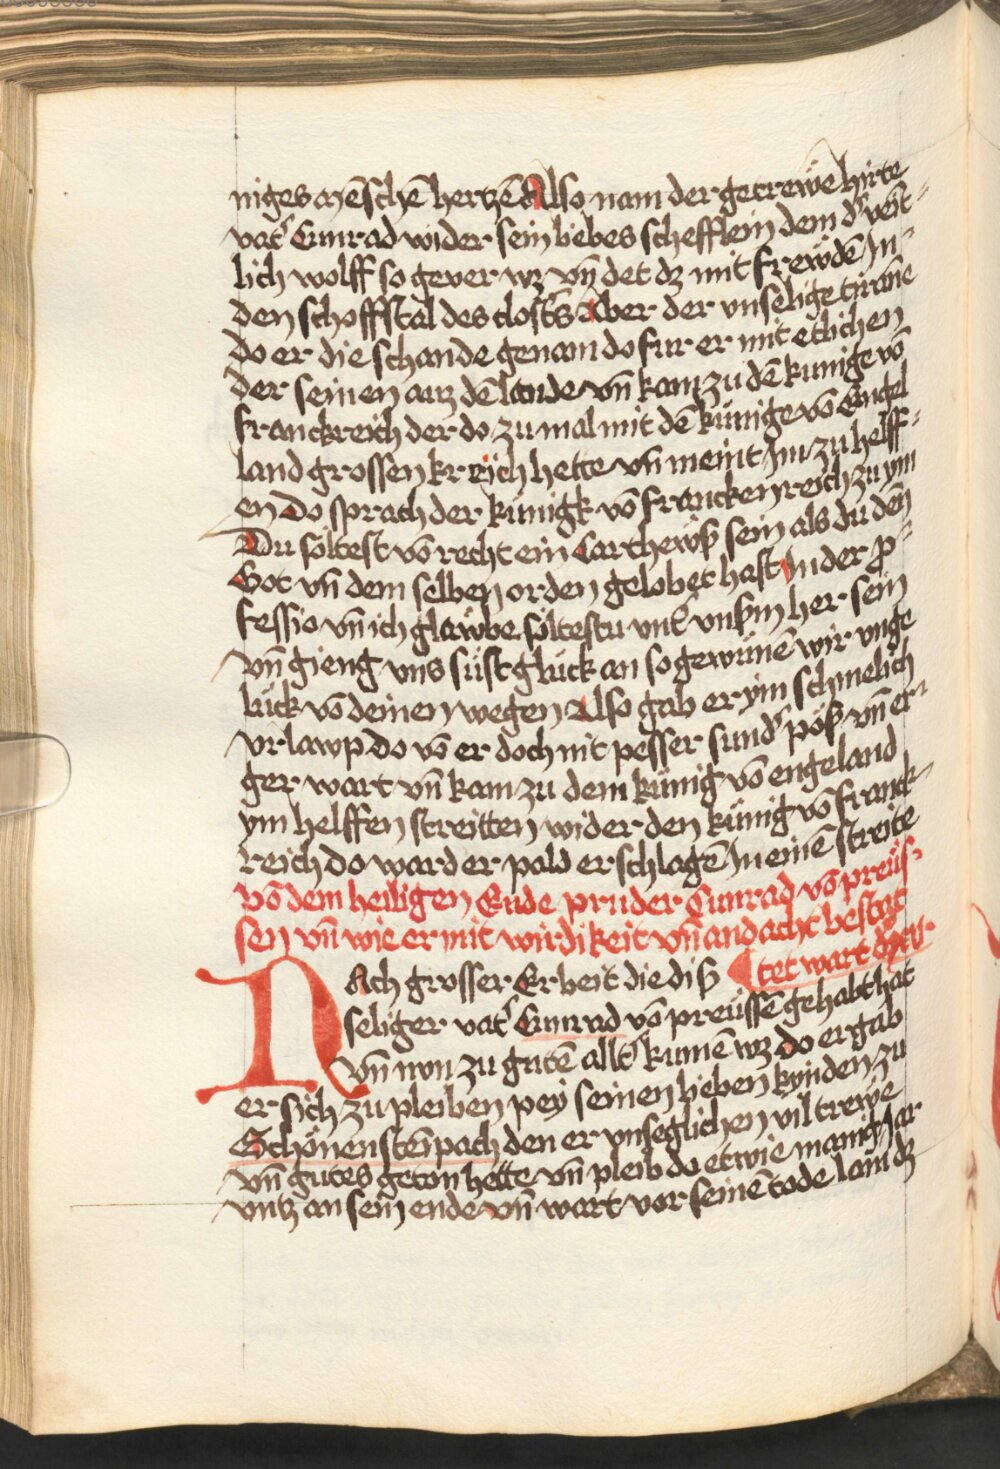 niges mēschē hertzē Also nam der getrewe hirte
vat᷑ Cunrad wider sein liebes schefflein dem d᷑ veīt-
lich wolff so gever wz vn̄ det dz mit frewdē In
den schoffstal des clost᷑s Aber der vnselige tirāne
do er die schande genam do fur er mit etlichen
der seinen auz dē lande vn̄ kam zu dē kunige vō
franckreich der do zu mal mit dē künige vō Engel
land grossen kreich hette vn̄ meint Im zu helff-
en Do sprach der künigk vō franckenreich zu ym
Du söltest vō recht ein Carthewß sein als du den
Got vn̄ dem selben orden gelobet hast In der p̄-
fessio vn̄ ich glawbe söltestu vnß vnßm her sein
vn̄ gieng vns süst glück an so gewünē wir vnge
lück vō deinen wegen Also gab er ym schmelich
vrlawp do vō er doch nit pesser sund᷑ pöß vn̄ er-
ger wart vn̄ kam zu dem künig vō engeland
ym helffen streitten wider den künig vō franck-
reich do ward er pald erschlagē In einē streite
vō dem heiligen Ende pruder Cunrad vō preüs-
sen vn̄ wie er mit wirdikeit vn̄ andacht bestat
tet wart
NAch grosser Erbeit die diß
seliger vat᷑ Cunrad vō preüssē gehabt hat
vn̄ nvn zu gutē allt᷑ kumē wz do er gab
er sich zu pleiben pey seinen lieben kynden zu
Schönensteīpach den er vnseglichen vil trewe
vn̄ gutes geton hette vn̄ pleib do etwie manig Jar
vntz an sein ende vn̄ wart vor seinē tode lam dz